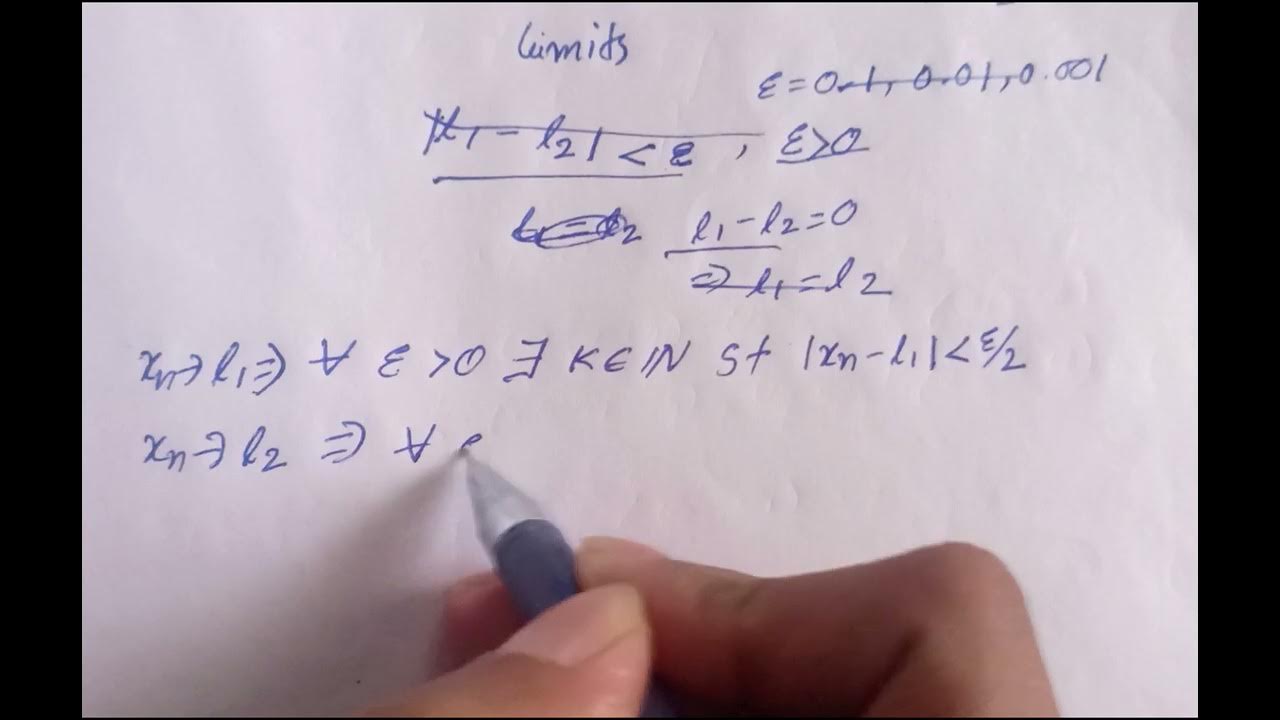 Limits
ε = 0.1, 0.01, 0.001
|l₁ - l₂| < ε, ε>0
l₁ = l₂ l₁ - l₂ = 0
⇒ l₁ = l₂
xₙ → l₁ ⇒ ∀ ε > 0 ∃ K ∈ ℕ St |xₙ - l₁| < ε/2
xₙ → l₂ ⇒ ∀